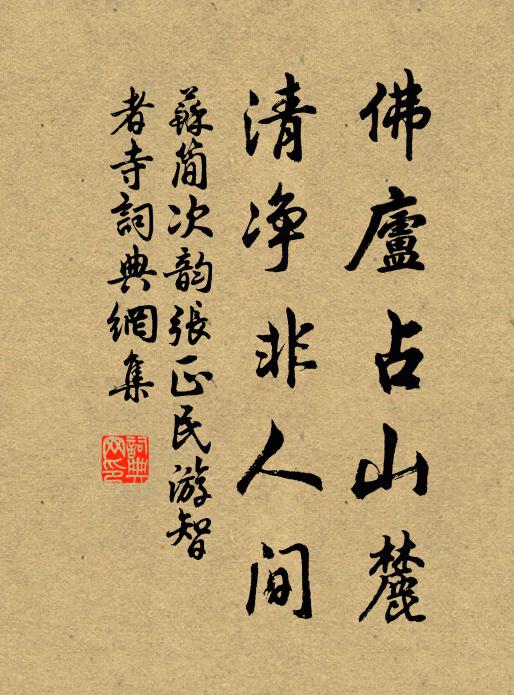 佛廬占山麓
清净非人间
蘇简次韵張正民游智
者寺詞典網集
詞典网印